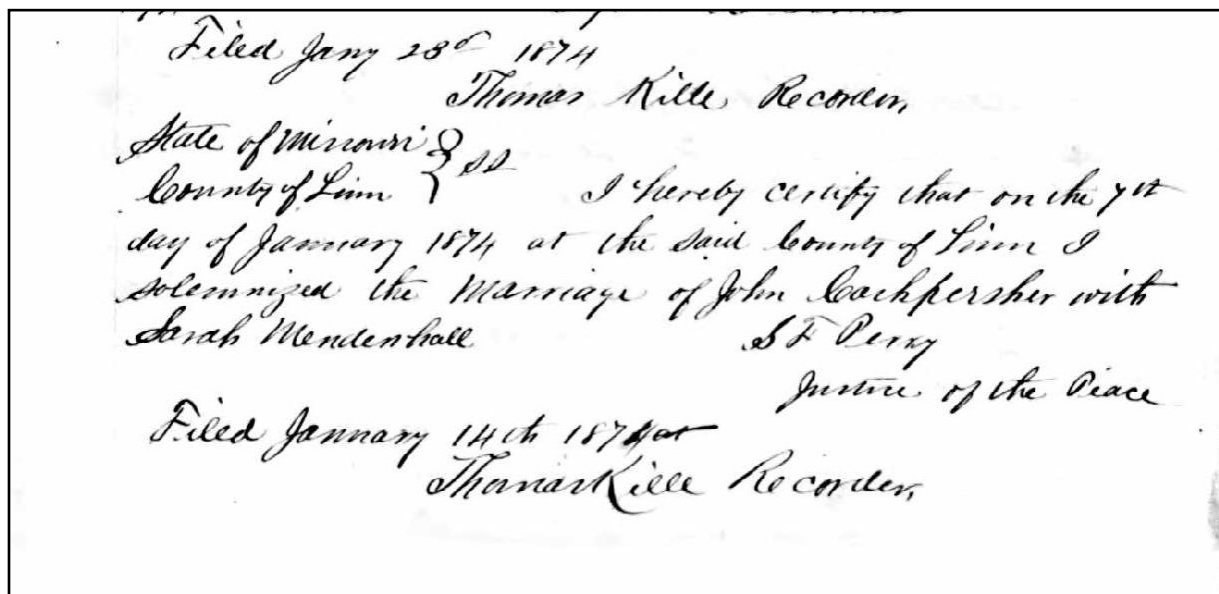 Filed Jany 23d 1874
Thomas Kille Recorder,
State of Missouri } SS
County of Linn I hereby certify that on the 7th
day of January 1874 at the said County of Linn I
solemnized the Marriage of John Cochpersher with
Sarah Mendenhall S F Perry
Justice of the Peace
Filed January 14th 1874
Thomas Kille Recorder,